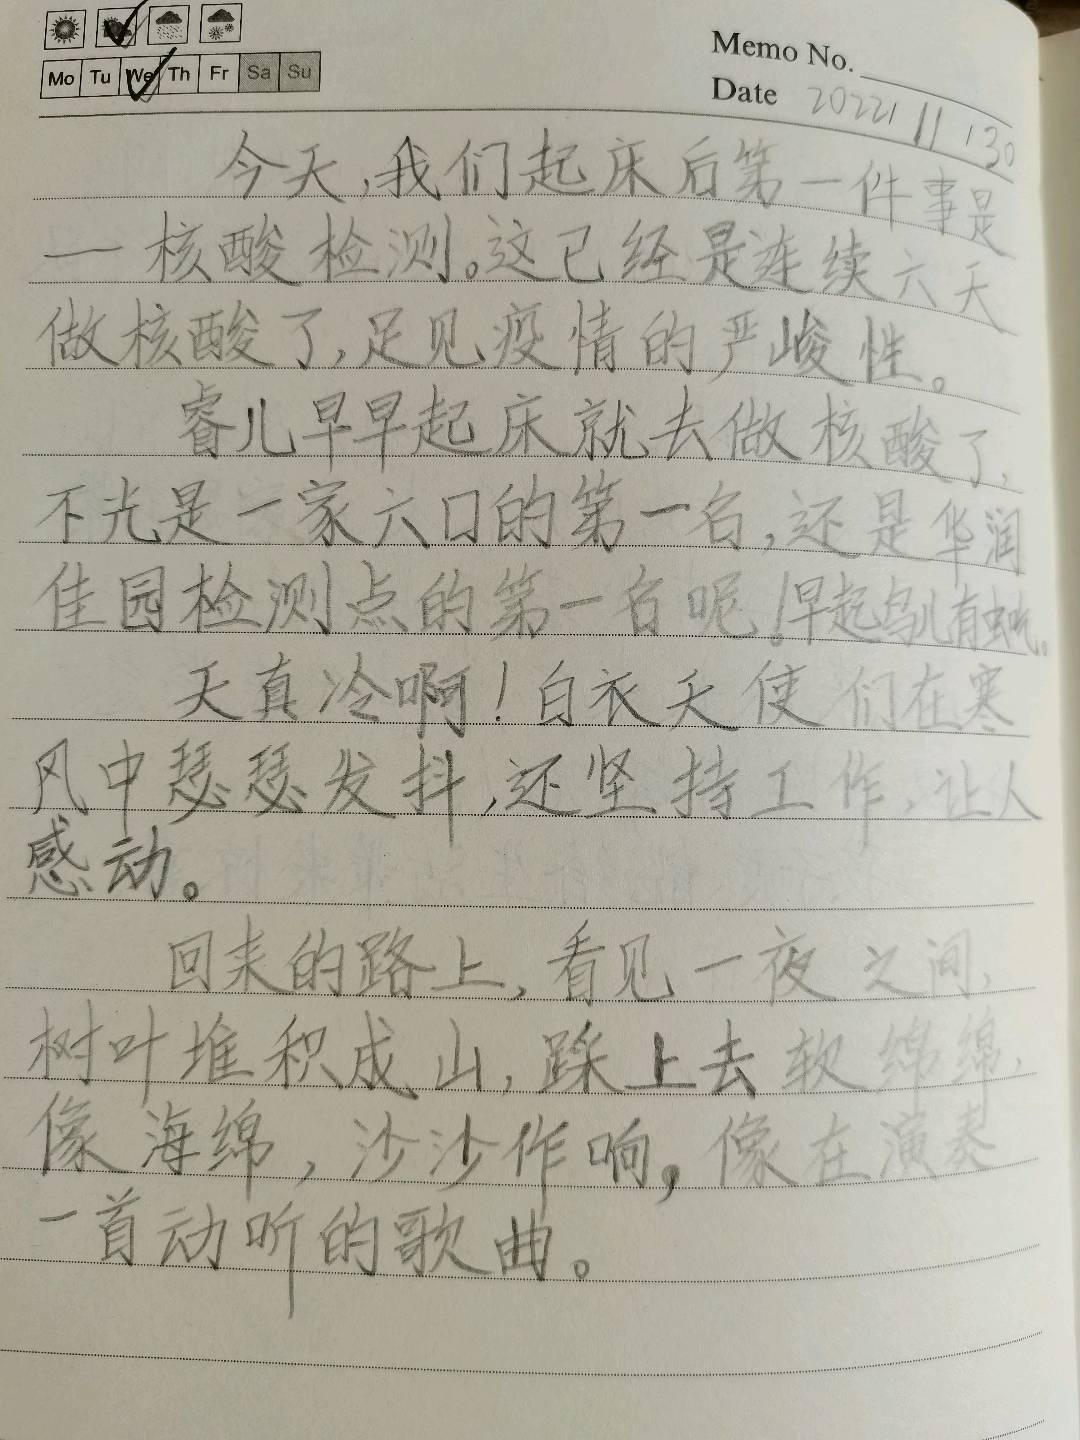 Mo Tu We Th Fr Sa Su
Memo No.
Date 2022 11 30
今天,我们起床后第一件事是
一核酸检测。这已经是连续六天
做核酸了,足见疫情的严峻性。
睿儿早早起床就去做核酸了,
不光是一家六口的第一名,还是华润
佳园检测点的第一名呢!早起鸟儿有虫吃。
天真冷啊!白衣天使们在寒
风中瑟瑟发抖,还坚持工作 让人
感动。
回来的路上,看见一夜之间,
树叶堆积成山,踩上去软绵绵,
像海绵,沙沙作响,像在演奏
一首动听的歌曲。